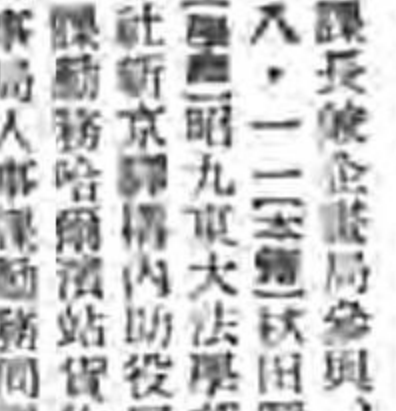 課長兼企畫局參與、
八・一一【本籍】秋田
【學歷】昭九東大法學
社新京驛構內助役
課勤務哈爾濱站貨
事局人事課勤務同